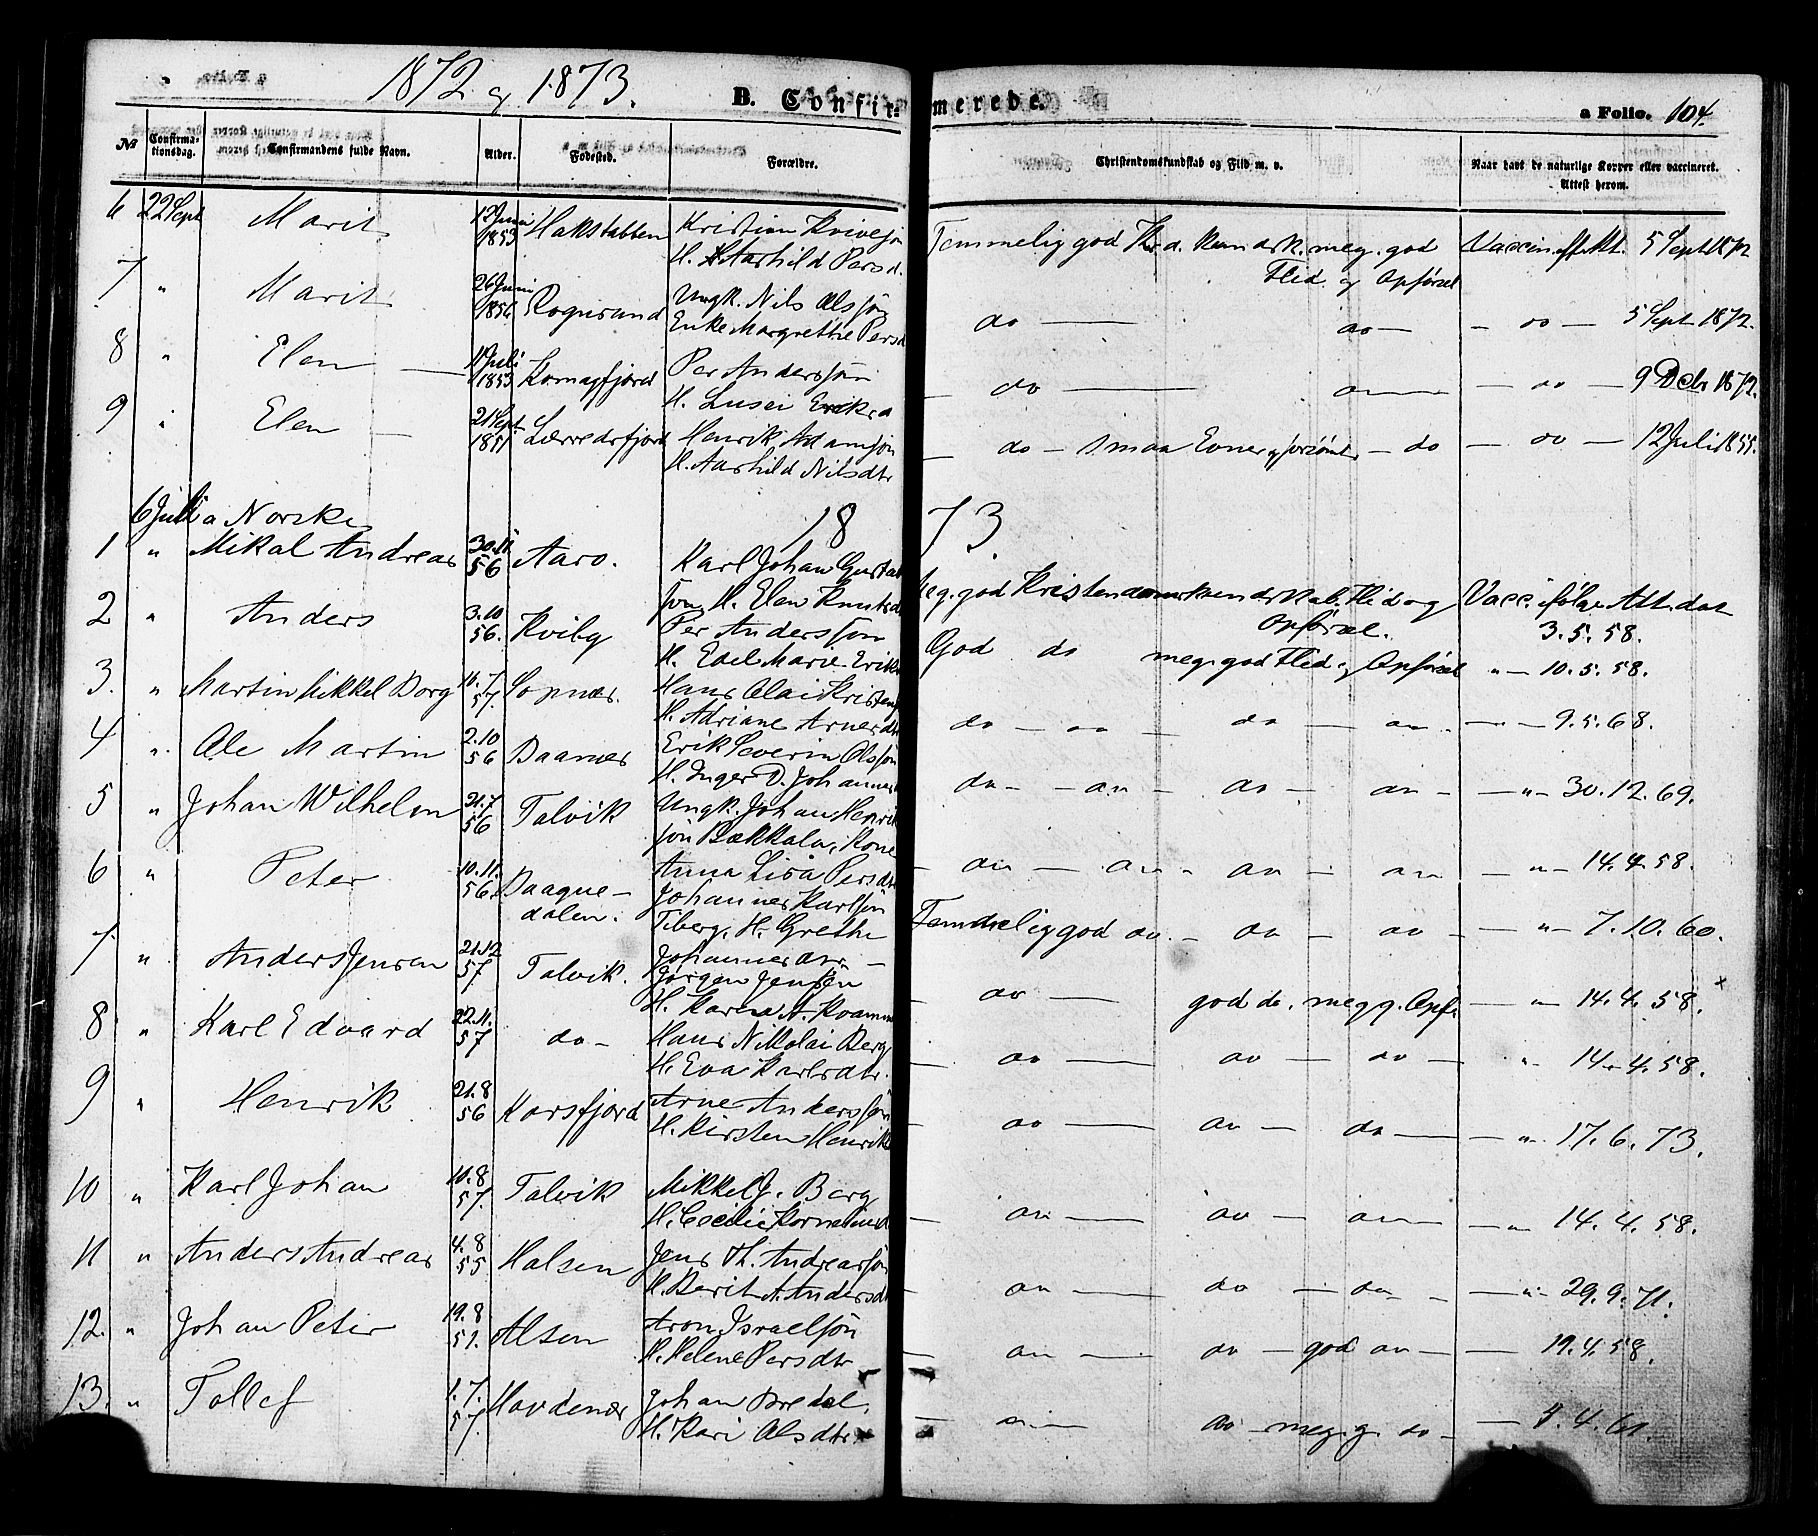 1872 og 1873.
B. Confirmerede.
a Folio. 104.
No
Confirmationsdag.
Confirmandens fulde Navn.
Alder.
Fødested.
Forældre.
Christendomskundskab og Flid m. v.
Naar havt de naturlige Kopper eller vaccineret. Attest herom.
6 22 Sept Marit 12 Juni 1853 Hakstabben Kristian Kvivesøn
H. Aashild Persd.
Temmelig god Kr.d. kundsk. meg. god Flid og Opførsel
Vaccin. 5 Sept 1872
7 " Marit 26 Juni Rognsund Ungk. Nils Olssøn
Enke Margrethe Persd
do — do — — do — 5 Sept 1872.
8 " Elen 1853 Komagfjord Per Anderssøn
H. Lusei Eriksd
— do — — do — 9 1872.
9 " Elen — 21 Sept. 1851 Lærredsfjord Henrik Adamsøn
H. Aashild Nilsdtr
— do — smaa Evner — do — do — 12 Juli 1855.
6 Juli a Norske
1873.
1 " Mikal Andreas 30.11 56 Aarø. Karl Johan Gustafsøn H. Elen Knutsd
Meg. god Kristendomskundskab. Flid og Opførsel. Vacc. ifølge Att. dat 3.5.58.
2 " Anders 3.10 56. Kviby Per Anderssøn
H. Edel Marie Eriks
God do meg. god Flid og Opførsel " — 10.5.58.
3. " Martin Mikkel Borg 10.7 57. Sopnæs. Hans Olai Kristens
H. Adriane Arnesdtr
do — do — do — do — " — 9.5.68.
4 " Ole Martin 2.10 56 Baanæs Erik Severin Olssøn
H. Inger D. Johannes
do — do — do — do — — " — 30.12.69.
5 " Johan Wilhelm 31.7 56 Talvik Ungk. Johan Henriksøn Bækkala, Kone
Anna Lisa Persdtr
— do — do — do — do — " — 14.4.58.
6 " Peter 10.11. 56. Baaquedalen. Johannes Karlsøn
Tiberg, H. Grethe
Johannesdtr. —
Temmelig god do. — do — do — — " — 7.10.60.
7 " Anders Jensen 21.12 57 Talvik. Jørgen Jensen
H. Karen A. Kvamme
— do — god do. meg g. Opf. — " — 14.4.58. x
8 " Karl Edvard 22.11. 57 — do — Hans Nikolai Berg
H. Eva Karlsdtr.
— do — do — do — " — 14.4.58.
9 " Henrik 21.8 56 Korsfjord Arne Anderssøn
H. Kirsten Henriks
— do — do — do — — " — 17.6.73.
10 " Karl Johan 10.8 57. Talvik Mikkel J. Berg
H. Cecilie Korneliusd
— do — do — do — — " — 14.4.58.
11 " Anders Andreas 4.8 55 Halsen Jens Th. Andreassøn
H. Berit A. Andersdt
— do — do — do — — " — 29.9.71.
12. " Johan Peter 19.8 57. Alsen Aron Israelsøn
H. Helene Persdtr
— do — do — god do — — 19.4.58.
13. " Tollef 1.7. 57. Hovdenæs Johan Bredal.
H. Kari Olsdtr.
— do — do — meg. g. do — — 4.4.61.